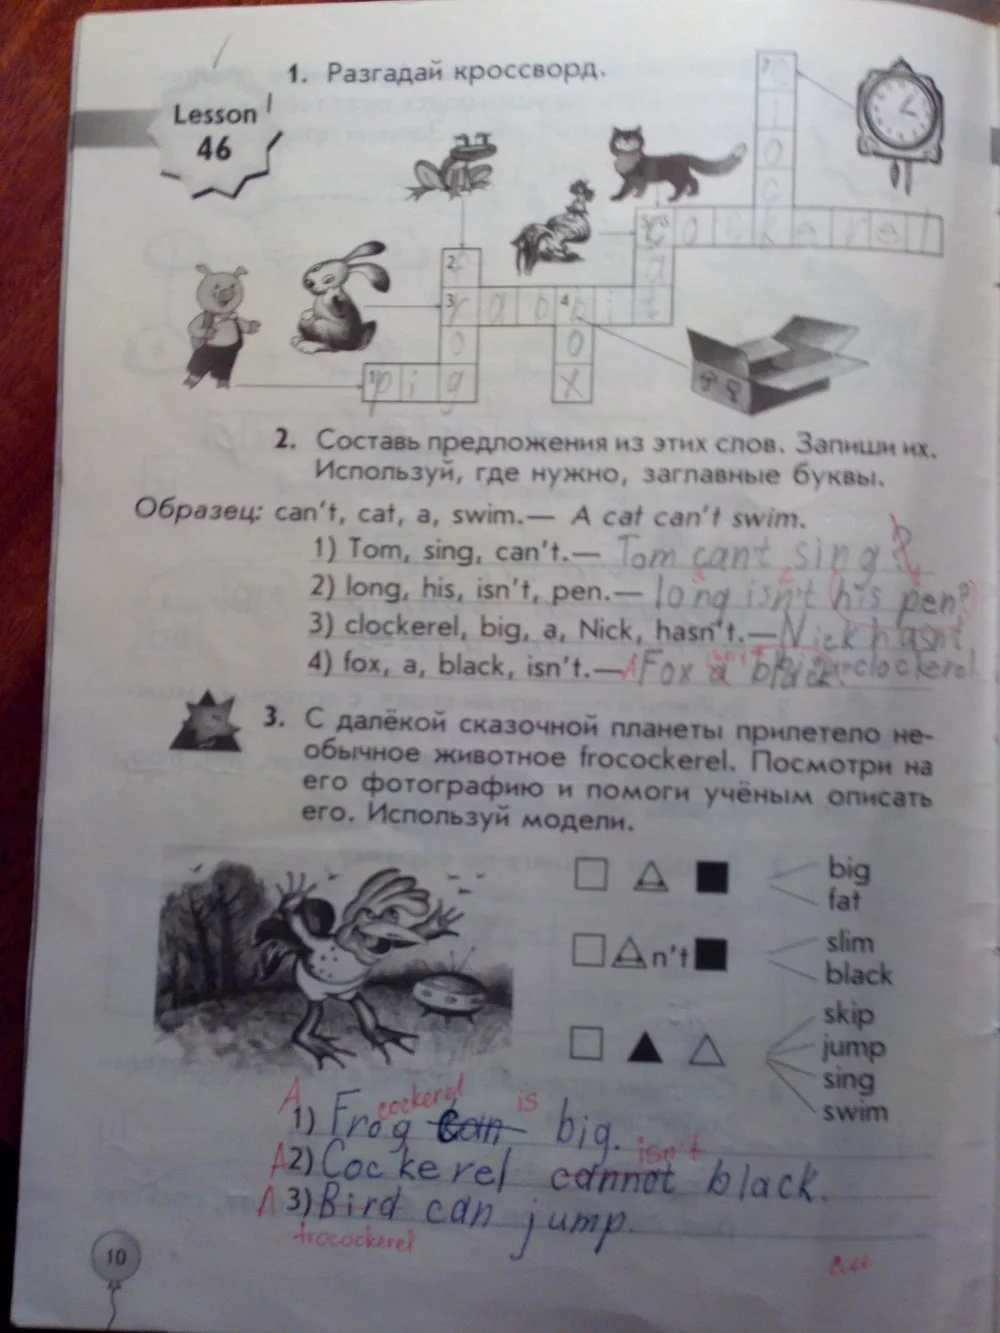 1. Разгадай кроссворд.
Lesson
46
7
c
l
o
c
5
c o c k e r e l
a
2
f
3 r a b 4 b i t
o o
1 p i g x
2. Составь предложения из этих слов. Запиши их.
Используй, где нужно, заглавные буквы.
Образец: can't, cat, a, swim.— A cat can't swim.
1) Tom, sing, can't.— Tom can't sing ?
2) long, his, isn't, pen.— long isn't his pen?
3) clockerel, big, a, Nick, hasn't.— Nick hasn't
4) fox, a, black, isn't.— A Fox a black. big a clockerel
3. С далёкой сказочной планеты прилетело не-
обычное животное frocockerel. Посмотри на
его фотографию и помоги учёным описать
его. Используй модели.
big
fat
n't
slim
black
skip
jump
sing
swim
A cockerel is
1) Frog can big.
isn't
A 2) Cockerel cannot black.
A 3) Bird can jump.
frocockerel
10
см